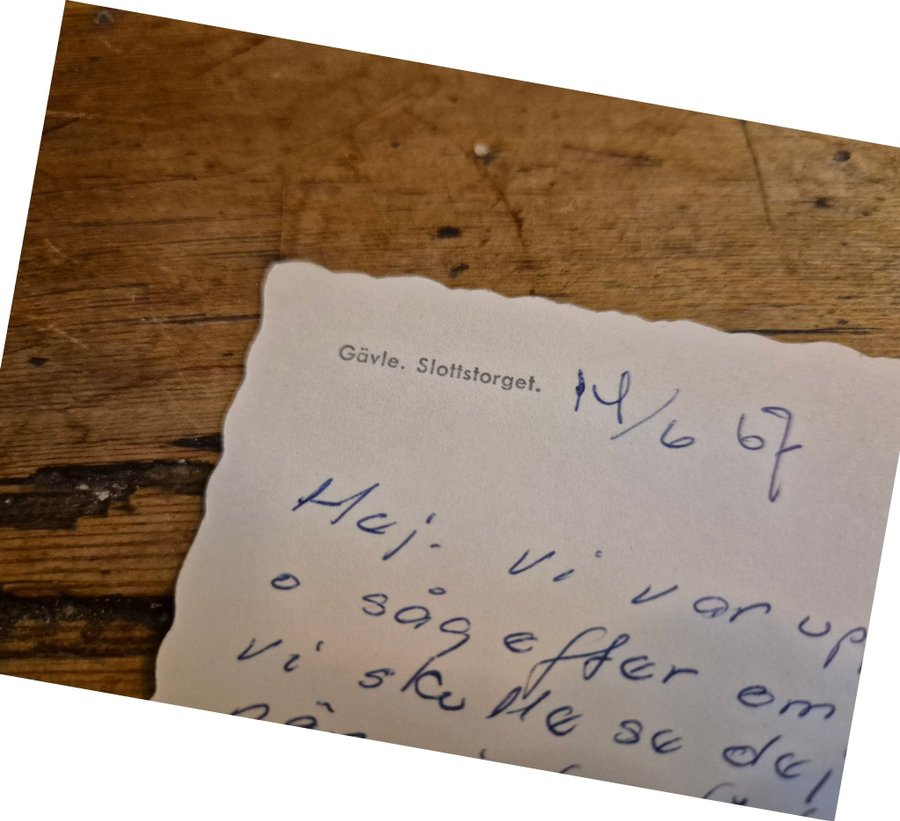 Gävle. Slottstorget. 14/6 67
Hej. vi var upp
o såg efter om
vi skulle se